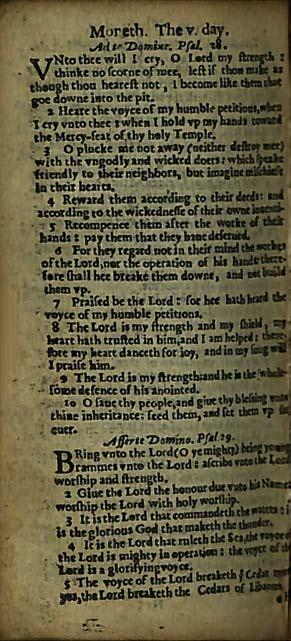 Moneth. The v. day.
Ad te Domine. Psal. 28.
VNto thee will I cry, O Lord my strength :
thinke no scorne of mee, lest if thou make as
though thou hearest not, I become like them that
goe downe into the pit.
2 Heare the voyce of my humble petitions, when
I cry vnto thee : when I hold vp my hands toward
the Mercy-seat of thy holy Temple.
3 O plucke me not away (neither destroy mee)
with the vngodly and wicked doers: which speake
friendly to their neighbors, but imagine mischiefe
in their hearts.
4 Reward them according to their deeds: and
according to the wickednesse of their owne
5 Recompence them after the worke of their
hands : pay them that they haue deserued.
6 For they regard not in their mind the workes
of the Lord, nor the operation of his hands: there-
fore shall hee breake them downe, and not build
them vp.
7 Praised be the Lord : for hee hath heard the
voyce of my humble petitions.
8 The Lord is my strength and my shield, my
heart hath trusted in him, and I am helped : there-
fore my heart danceth for joy, and in my song will
I praise him.
9 The Lord is my strength: and he is the whole-
some defence of his anointed.
10 O saue thy people, and giue thy blessing vnto
thine inheritance: feed them, and set them vp for
euer.
Afferte Domino. Psal 29.
BRing vnto the Lord (O ye mighty) bring young
rammes vnto the Lord : ascribe vnto the Lord
worship and strength.
2 Giue the Lord the honour due vnto his Name:
worship the Lord with holy worship.
3 It is the Lord that commandeth the waters : i
is the glorious God that maketh the thunder.
4 It is the Lord that ruleth the Sea, the voyce of
the Lord is mighty in operation : the voyce of the
Lord is a glorifying voyce.
5 The voyce of the Lord breaketh ỹ Cedar
yea, the Lord breaketh the Cedars of Libanus.